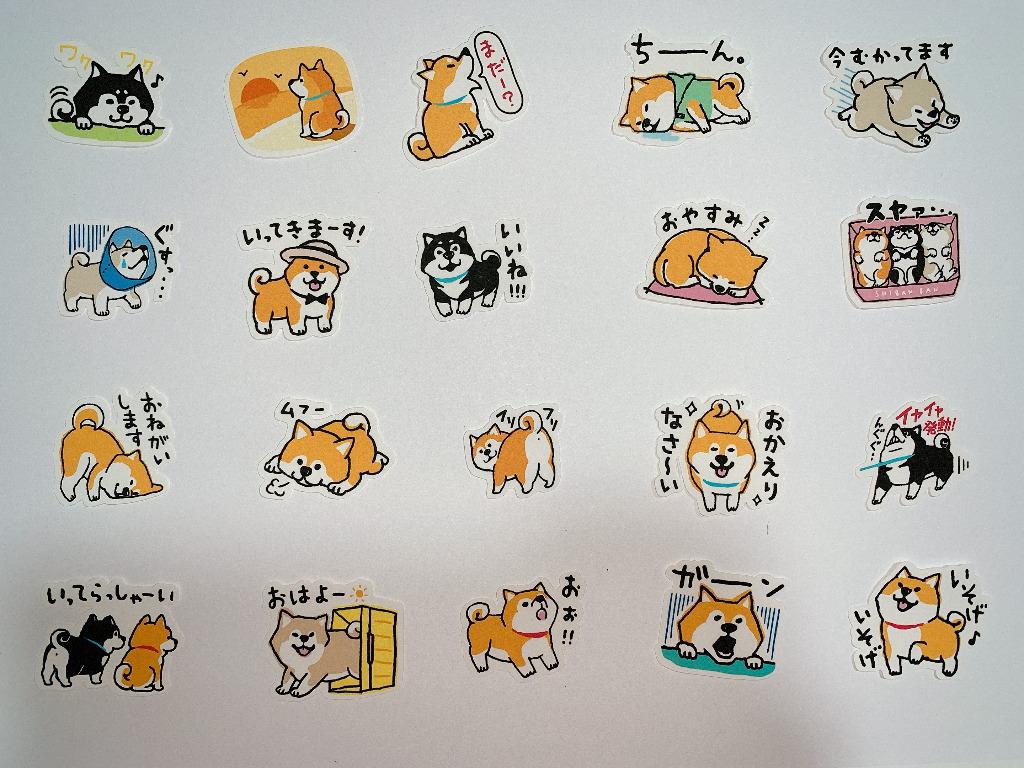 ワク ワク♪
まだー?
ちーーん。
今むかってます
ぐすっ…
いってきまーす!
いいね!!!
おやすみ
zzz…
スヤァ…
SHIBAN BAN
おねがい
します
ムフー
フリ フリ
おかえり
なさ〜い
イヤイヤ
発動!
んぐぐ…
いってらっしゃーい
おはよー
おぉ!!
ガーーン
いそげ♪
いそげ